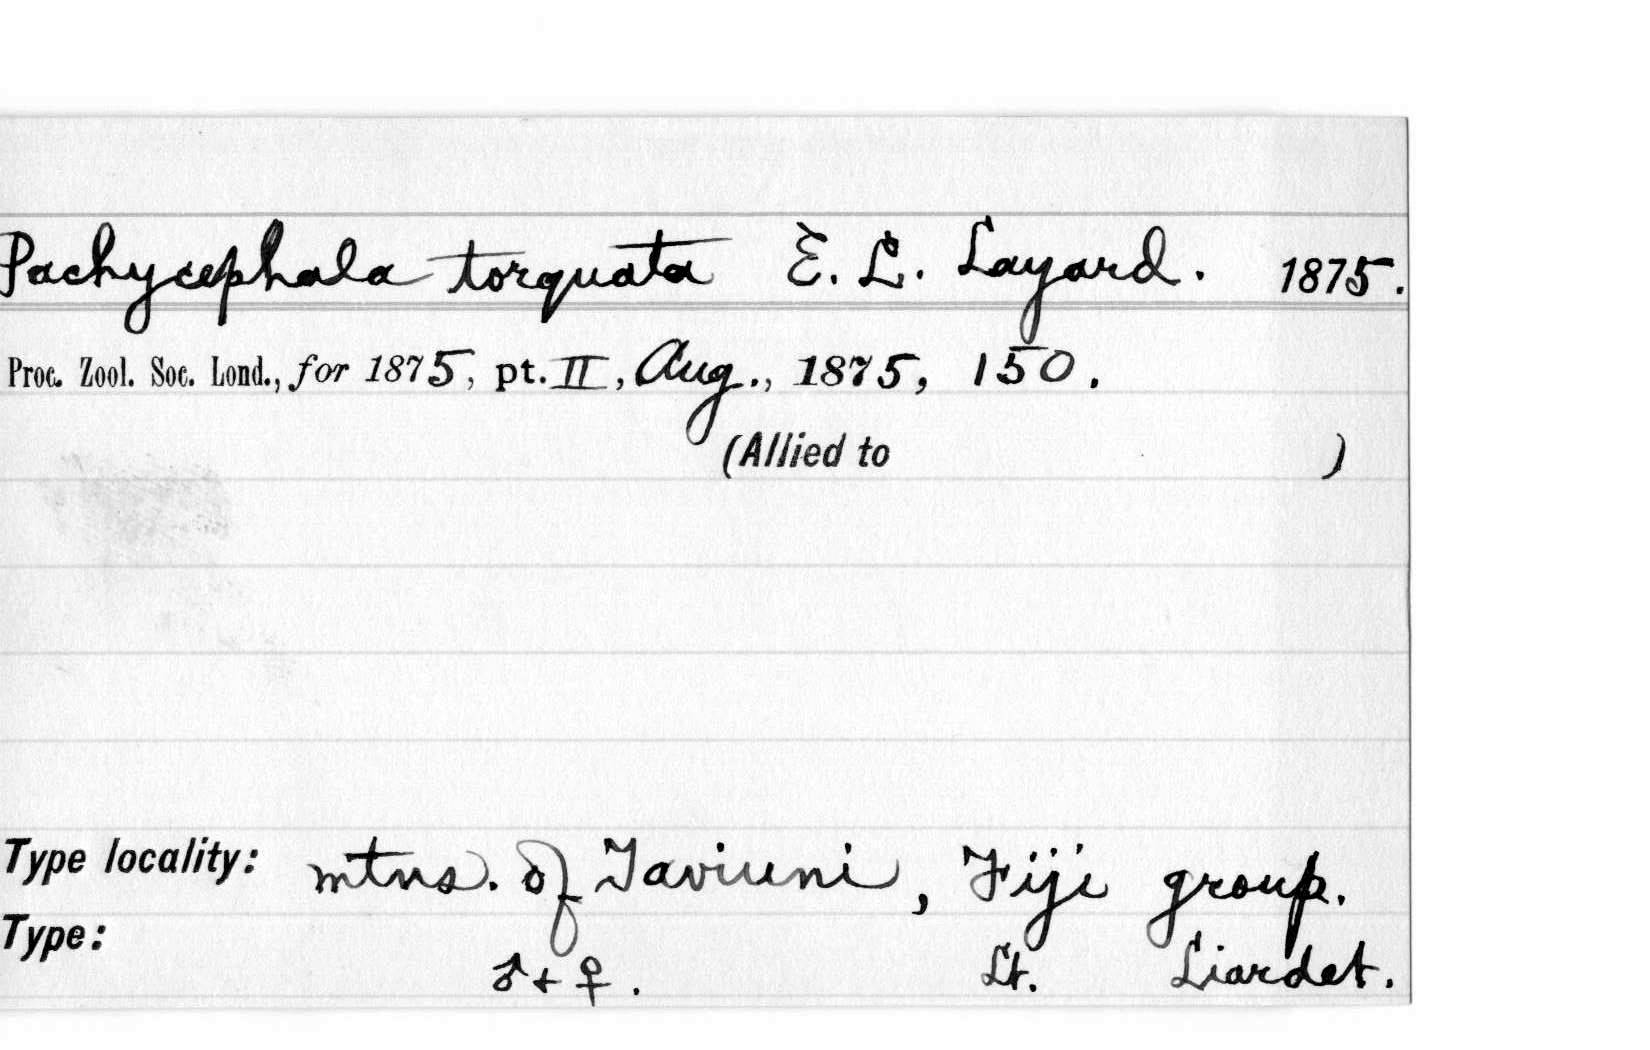 Pachycephala torquata E. L. Layard. 1875.
Proc. Zool. Soc. Lond., for 1875, pt. II, Aug., 1875, 150.
(Allied to )
Type locality: mtns. of Taviuni, Fiji group.
Type:
♂ + ♀. Lt. Liardet.